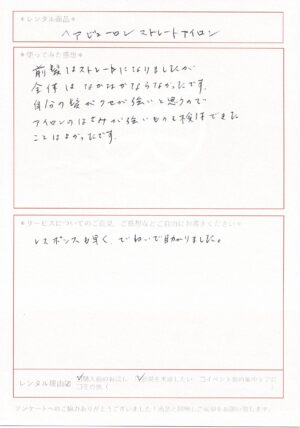 ＊レンタル商品＊
ヘアビューロン ストレートアイロン
＊使ってみた感想＊
前髪はストレートになりましたが
全体はなかなかならなかったです。
自分の髪がクセが強いと思うので
アイロンのはさみが強いものを検討できた
ことはよかったです。
＊サービスについてのご意見、ご感想などご自由にお書きください＊
レスポンスも早く、ていねいで助かりました。
レンタル理由☑
☑購入前のお試し ☑効果を実感したい □イベント前の集中ケアに
アンケートへのご協力ありがとうございました！商品と同梱しご返却をお願い致します。